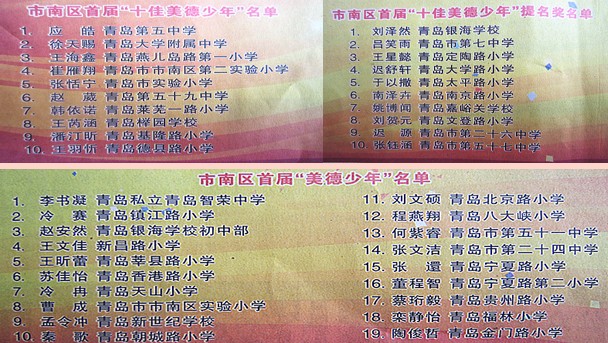 市南区首届“十佳美德少年”名单
1. 应 皓 青岛第五中学
2. 徐天赐 青岛大学附属中学
3. 王海鑫 青岛燕儿岛路第一小学
4. 崔雁翔 青岛市市南区第二实验小学
5. 张恬宁 青岛市实验小学
6. 赵 葳 青岛第五十九中学
7. 韩依诺 青岛莱芜一路小学
8. 王芮涵 青岛榉园学校
9. 潘汀昕 青岛基隆路小学
10. 王羽忻 青岛德县路小学
市南区首届“十佳美德少年”提名奖名单
1. 刘泽然 青岛银海学校
2. 吕笑雨 青岛市第七中学
3. 王星懿 青岛定陶路小学
4. 迟舒轩 青岛大学路小学
5. 于以撒 青岛太平路小学
6. 南泽卉 青岛南京路小学
7. 姚博闻 青岛嘉峪关学校
8. 刘贺元 青岛文登路小学
9. 迟 源 青岛市第二十六中学
10. 张钰涵 青岛市第五十七中学
市南区首届“美德少年”名单
1. 李书凝 青岛私立青岛智荣中学
2. 冷 赛 青岛镇江路小学
3. 赵安然 青岛银海学校初中部
4. 王文佳 新昌路小学
5. 王昕蕾 青岛莘县路小学
6. 苏佳怡 青岛香港路小学
7. 冷 冉 青岛天山小学
8. 曹 成 青岛市市南区实验小学
9. 孟令冲 青岛新世纪学校
10. 秦 歌 青岛朝城路小学
11. 刘文硕 青岛北京路小学
12. 程燕翔 青岛八大峡小学
13. 何紫睿 青岛市第五十一中学
14. 张文洁 青岛市第二十四中学
15. 张 䢵 青岛宁夏路小学
16. 董程智 青岛宁夏路第二小学
17. 蔡珩毅 青岛贵州路小学
18. 栾静怡 青岛福林小学
19. 陶俊哲 青岛金门路小学